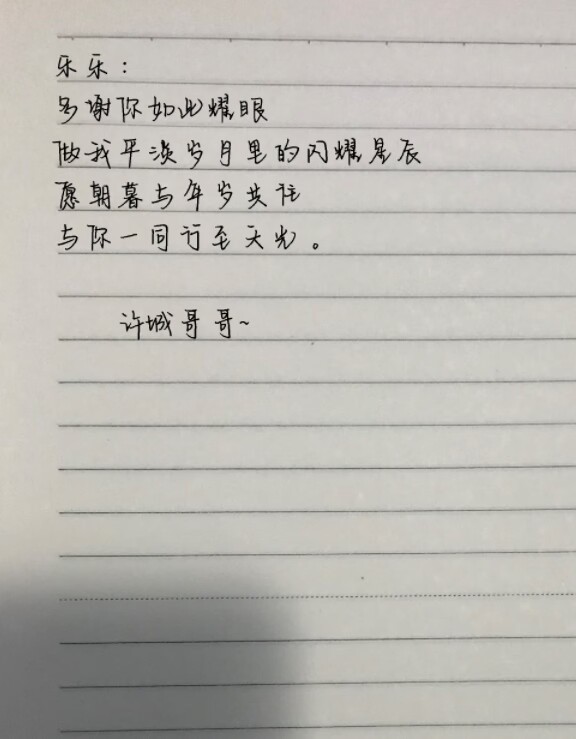 乐乐：
多谢你如此耀眼
做我平淡岁月里的闪耀星辰
愿朝暮与年岁共往
与你一同行至天光。
许城哥哥~